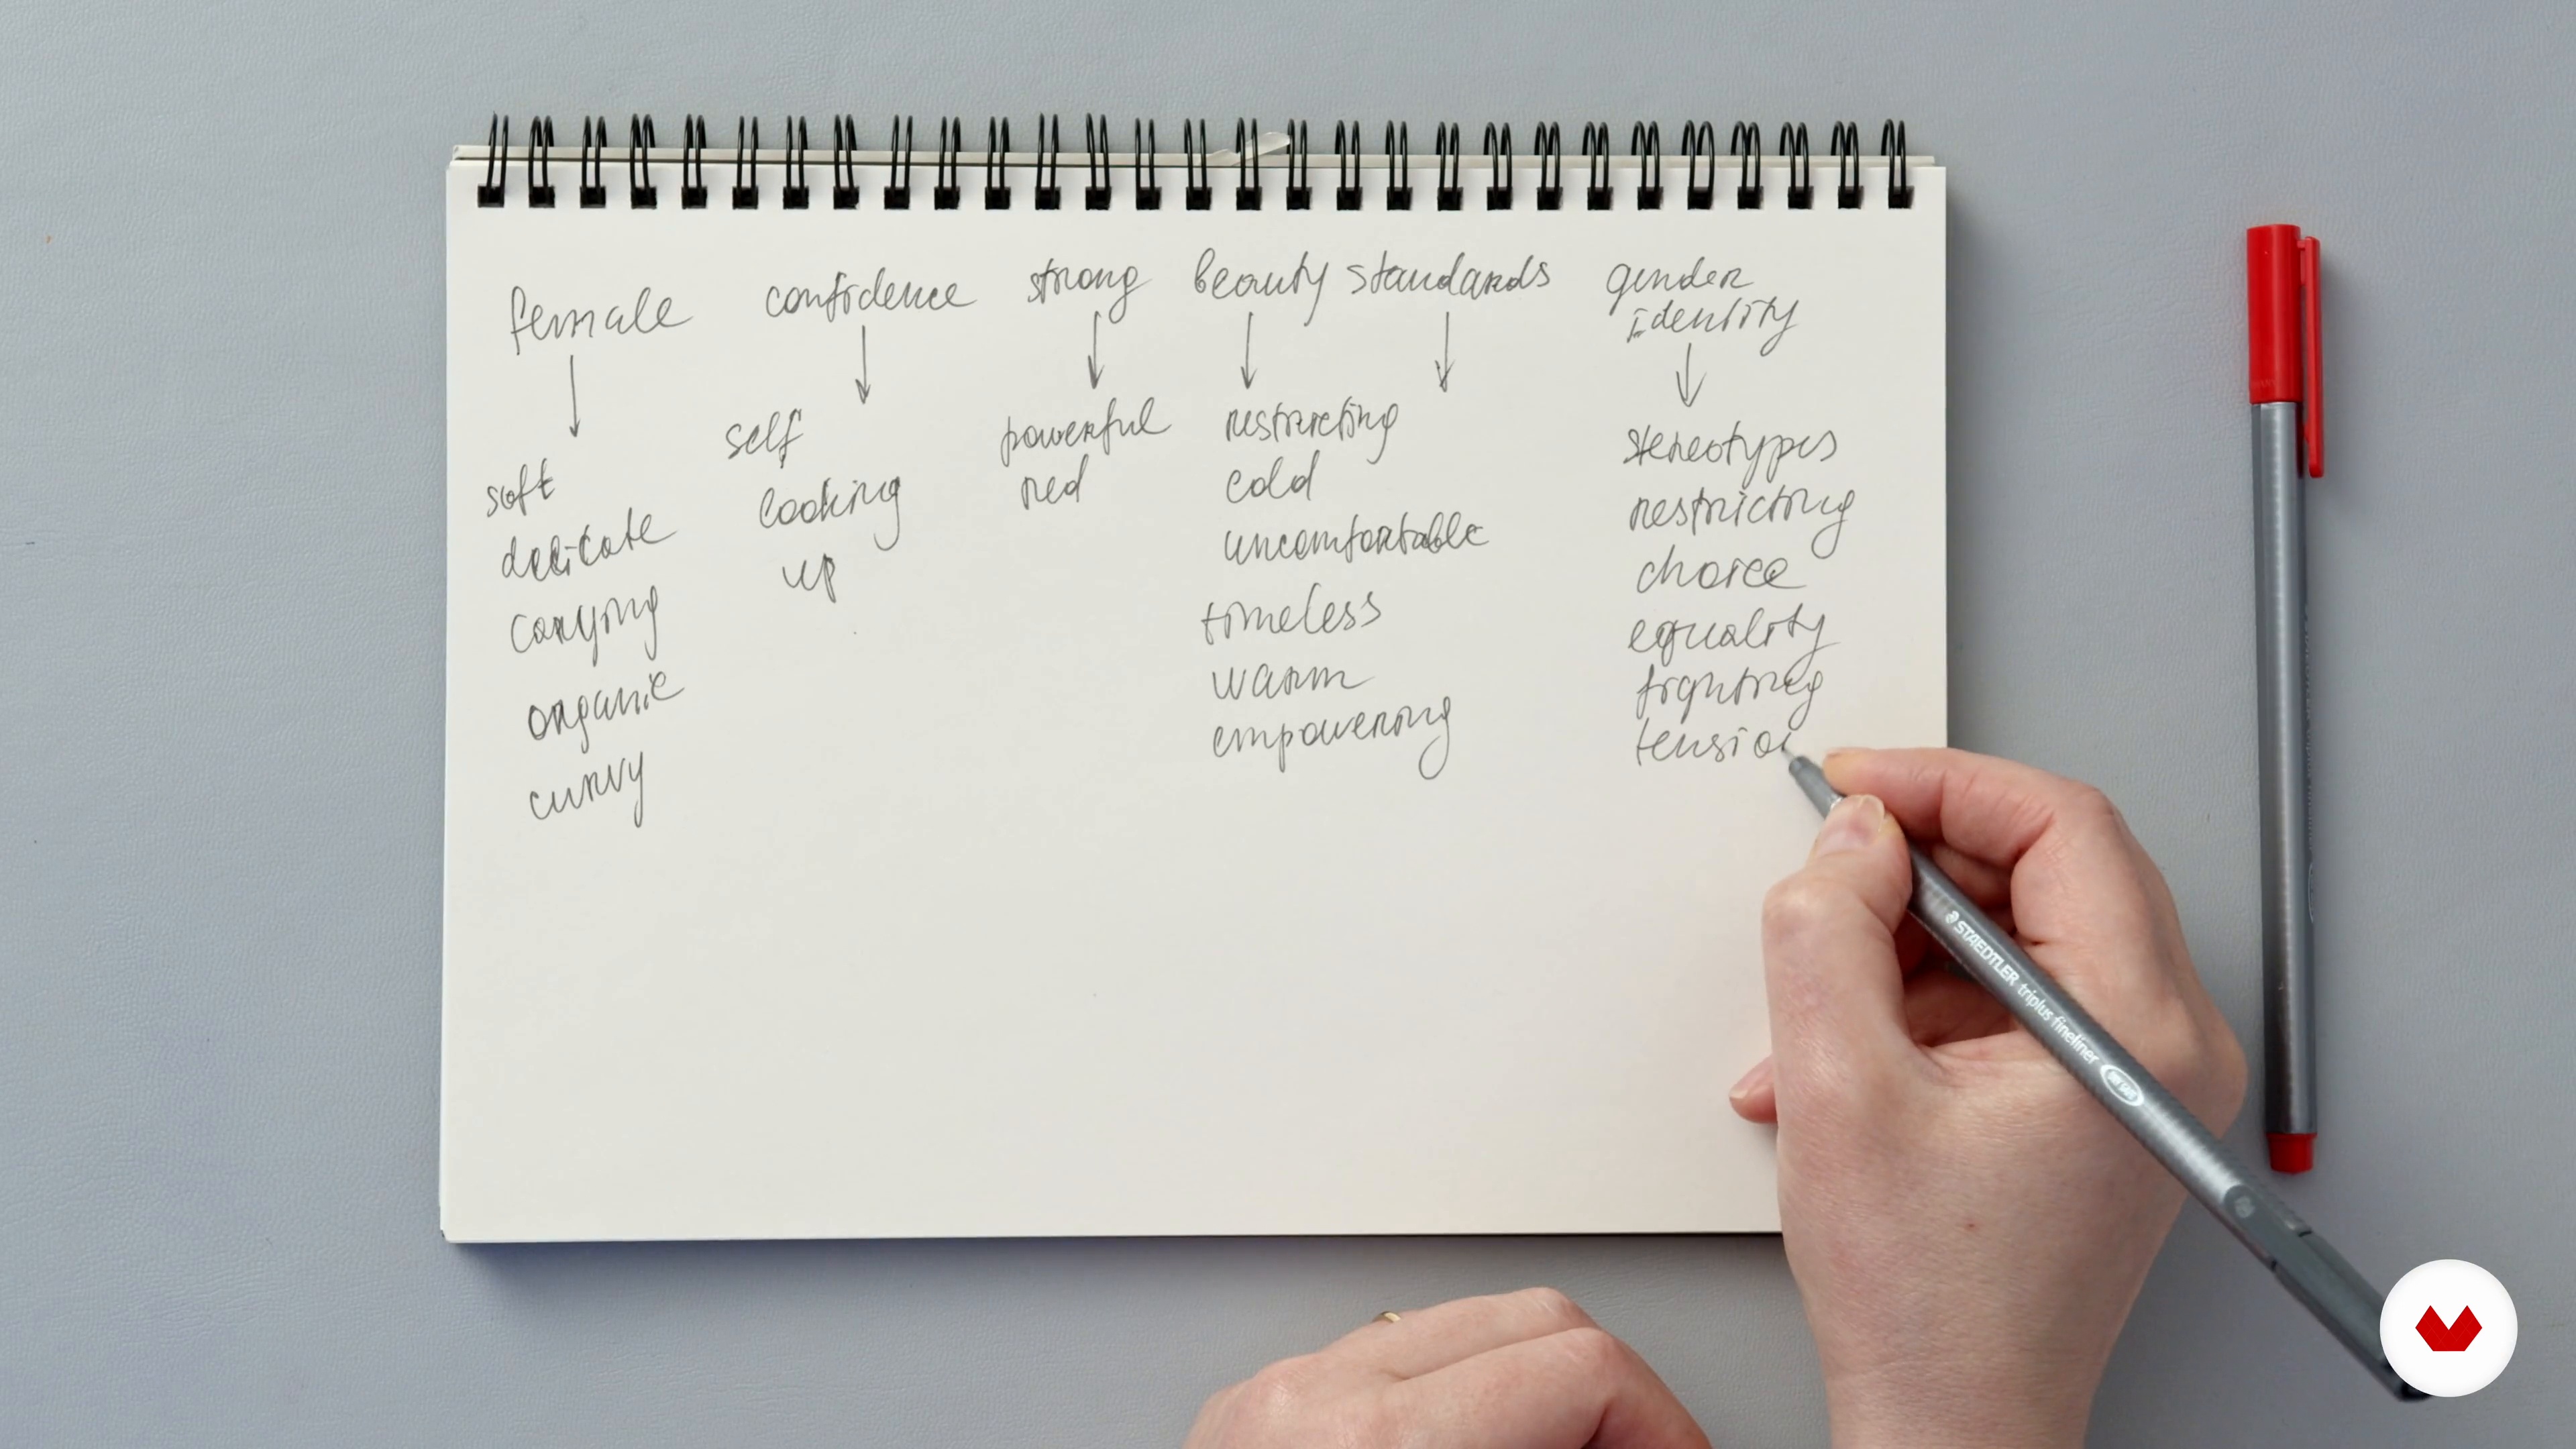 female
soft
delicate
carrying
organic
curvy
confidence
self
looking
up
strong
powerful
red
beauty standards
restricting
cold
uncomfortable
timeless
warm
empowering
gender
identity
stereotypes
restricting
choice
equality
fighting
tension
STAEDTLER triplus fineliner